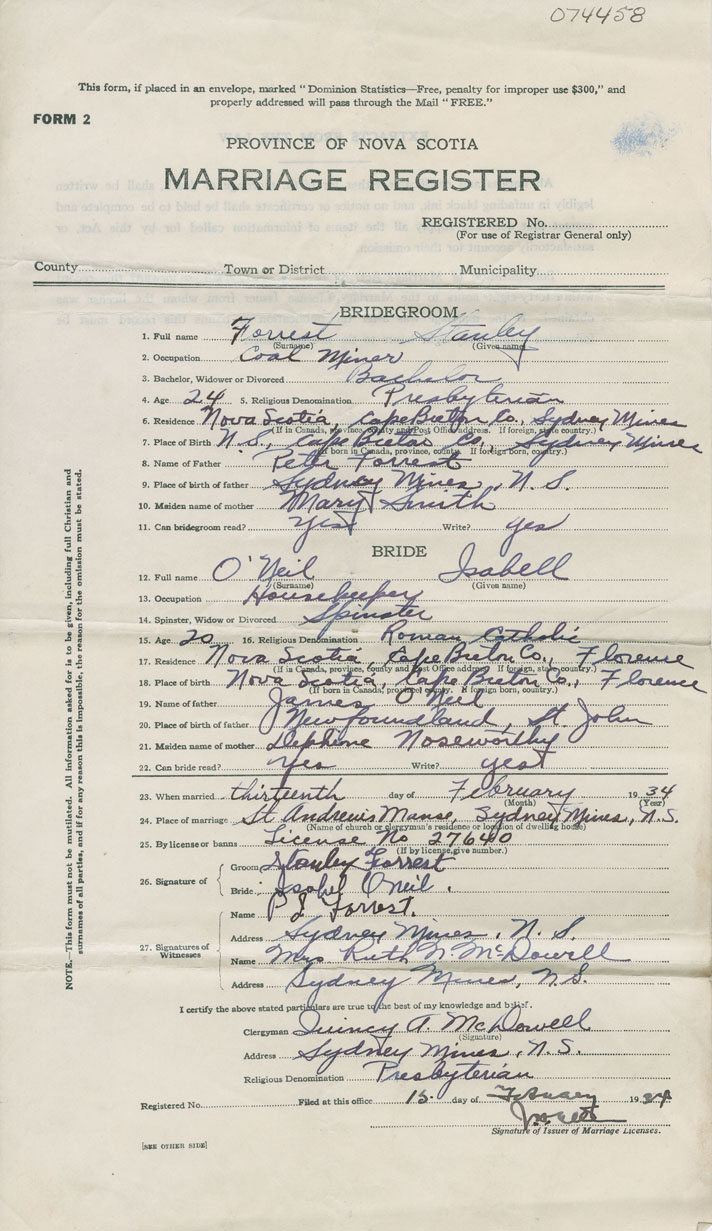 074458
This form, if placed in an envelope, marked "Dominion Statistics—Free, penalty for improper use $300," and
properly addressed will pass through the Mail "FREE."
FORM 2
PROVINCE OF NOVA SCOTIA
MARRIAGE REGISTER
REGISTERED No.
(For use of Registrar General only)
County Town or District Municipality
BRIDEGROOM
1. Full name Forrest Stanley
(Surname) (Given name)
2. Occupation Coal Miner
3. Bachelor, Widower or Divorced Bachelor
4. Age 24 5. Religious Denomination Presbyterian
6. Residence Nova Scotia, Cape Breton Co., Sydney Mines
(If in Canada, province, county and Post Office address. If foreign, state country.)
7. Place of Birth N.S., Cape Breton Co., Sydney Mines
(If born in Canada, province, county. If foreign born, country.)
8. Name of Father Peter Forrest
9. Place of birth of father Sydney Mines, N.S.
10. Maiden name of mother Mary Smith
11. Can bridegroom read? yes Write? yes
BRIDE
12. Full name O'Neil Isabell
(Surname) (Given name)
13. Occupation Housekeeper
14. Spinster, Widow or Divorced Spinster
15. Age 20 16. Religious Denomination Roman Catholic
17. Residence Nova Scotia, Cape Breton Co., Florence
(If in Canada, province, county and Post Office address. If foreign, state country.)
18. Place of birth Nova Scotia, Cape Breton Co., Florence
(If born in Canada, province, county. If foreign born, country.)
19. Name of father James O'Neil
20. Place of birth of father Newfoundland, St. John
21. Maiden name of mother Dephine Noseworthy
22. Can bride read? Yes Write? yes
23. When married thirteenth day of February 1934
(Month) (Year)
24. Place of marriage St Andrews Manse, Sydney Mines, N.S.
(Name of church or clergyman's residence or location of dwelling house)
25. By license or banns License No 27640
(If by license, give number.)
26. Signature of Groom Stanley Forrest
Bride Isabel Oneil.
27. Signatures of Witnesses Name P J Forrest.
Address Sydney Mines, N.S.
Name Mrs Ruth N. McDowell
Address Sydney Mines, N.S.
I certify the above stated particulars are true to the best of my knowledge and belief.
Clergyman Quincy A. McDowell
(Signature)
Address Sydney Mines, N.S.
Religious Denomination Presbyterian
Registered No. Filed at this office 15 day of February 1934
Signature of Issuer of Marriage Licenses.
[SEE OTHER SIDE]
NOTE.—This form must not be mutilated. All information asked for is to be given, including full Christian and
surnames of all parties, and if for any reason this is impossible, the reason for the omission must be stated.